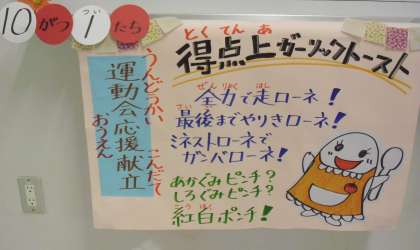 10がつ1たち
ついたち
とくてんあ
得点上ガーリックトースト
うんどうかい
運動会応援献立
おうえん
こんだて
ぜんりょく はし
全力で走ローネ!
さいご
最後までやりきローネ!
ミネストローネで
ガンバローネ!
あかぐみピンチ?
しろぐみピンチ?
こうはく
紅白ポンチ!